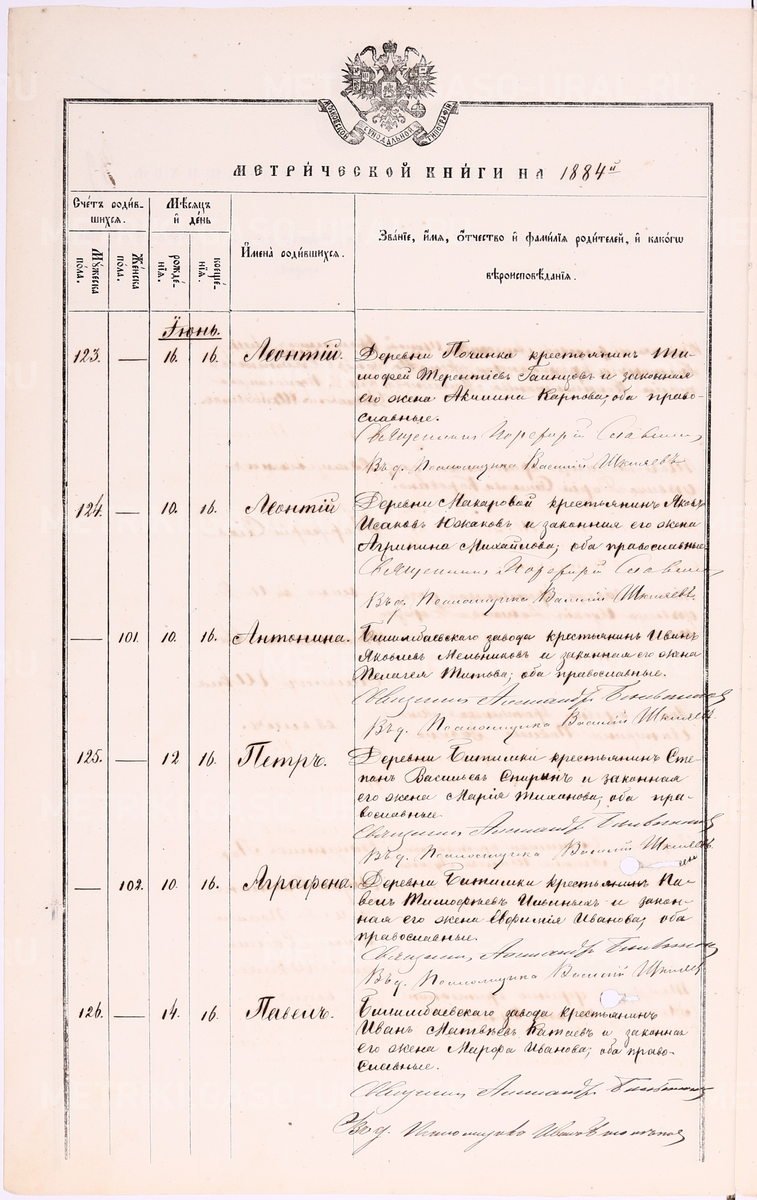 МОСКОВСКОЙ СѴНОДАЛЬНОЙ ТИПОГРАФІИ
МЕТРИ́ЧЕСКОЙ КНИ́ГИ НА 1884й
Сче́тъ роди́в-
шихся.
Мѣ́сяцъ
и҆ де́нь
И҆мена̀ роди́вшихся.
Зва́нїе, и҆́мя, ѻ҆́тчество и҆ фами́лїя роди́телей, и҆ како́гѡ
вѣроисповѣ́данїя.
Мꙋ́жеска
по́ла.
Же́нска
по́ла.
рожде́-
нїя.
креще́-
нїя.
Іюнь.
123. — 16. 16. Леонтій. Деревни Починка крестьянинъ Ти-
мофей Терентіевъ Галицовъ и законная
его жена Акилина Карпова; оба право-
славные.
Священникъ Порфирій Славнин
Въ д. Псаломщика Василій Шкляевъ
124. — 10. 16. Леонтій Деревни Макаровой крестьянинъ Яковъ
Исаковъ Южаковъ и законная его жена
Агрипина Михайлова; оба православные.
Священникъ Порфирій Славнин
Въ д. Псаломщика Василій Шкляевъ
— 101. 10. 16. Антонина. Билимбаевскаго завода крестьянинъ Иванъ
Яковлевъ Мельниковъ и законная его жена
Пелагея Титова; оба православные.
Священникъ Александръ
Въ д. Псаломщика Василій Шкляевъ
125. — 12 16. Петръ. Деревни Битимки крестьянинъ Сте-
панъ Васильевъ Спиринъ и законная
его жена Марія Тиханова; оба пра-
вославные.
Священникъ Александръ
Въ д. Псаломщика Василій Шкляевъ
— 102. 10. 16. Аграфена. Деревни Битимки крестьянинъ Па-
велъ Тимофѣевъ Ильиныхъ и закон-
ная его жена Евфимія Иванова; оба
православные.
Священникъ Александръ
Въ д. Псаломщика Василій Шкляевъ
126. — 14. 16. Павелъ. Билимбаевскаго завода крестьянинъ
Иванъ Матвѣевъ Катаевъ и законная
его жена Марфа Иванова; оба право-
славные.
Священникъ Александръ
Въ д. Псаломщика Иванъ